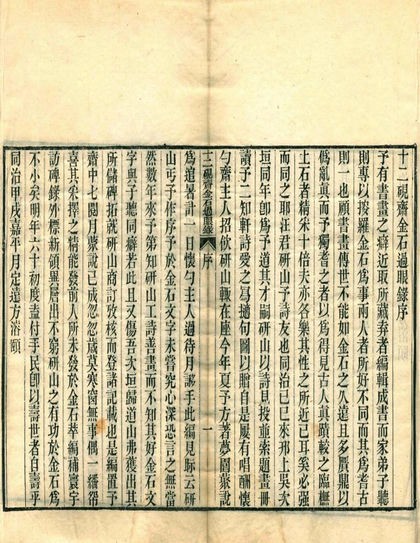 十二硯齋金石過眼錄序
予有書畫之癖近取所藏弆者編輯成書而家弟子聽
則專以搜羅金石爲事兩人者所好不同而其爲耆古
則一也顧書畫傳世不能如金石之久遠且多贗鼎以
僞亂眞而予獨耆之者以爲得見古人眞蹟較之臨橅
土石者精采十倍夫亦各樂其性之所近已耳奚必强
而同之耶汪君硯山予詩友也同治己巳來邗上吳次
垣同年卽爲予道其才嗣硯山以詩見投並索題畫冊
讀予二知軒詩愛之爲摘句圖以貽自是屢有唱酬懷
勺齋主人招飲硯山輒在座今年夏予方著夢園叢說
十二硯齋金石過眼錄 序 一
爲逭暑計一日懷勺主人過待月謻手此編見眎云硯
山丐子作序予於金石文字未嘗究心深恐言之無當
然數年來予第知硯山工詩善畫而不知其好金石文
字與子聽同癖若此且又傷吾次垣歸道山弗獲出其
所儲碑拓就硯山商訂攷核而登諸記載也是編置予
齋中七閱月蕞諈已成忽忽歲莫寒窗無事偶一繙帋
喜其采擇之精能發前人所未發於金石萃編補寰宇
訪碑錄外標新領異層出不窮硯山之有功於金石爲
不小矣明年六十初度盍付手民卽以壽世者自壽乎
同治甲戌嘉平月定遠方濬頤